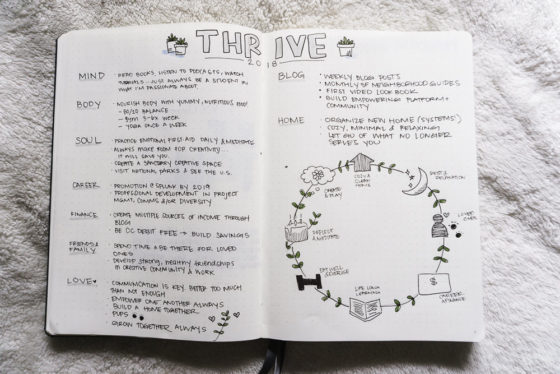 THRIVE
2018
MIND
· READ BOOKS, LISTEN TO PODCASTS, WATCH
TUTORIALS... JUST ALWAYS BE A STUDENT IN
WHAT I'M PASSIONATE ABOUT
BODY
· NOURISH BODY WITH YUMMY, NUTRITIOUS FOOD!
- 80/20 BALANCE
- GYM 5-6X WEEK
- YOGA ONCE A WEEK
SOUL
· PRACTICE EMOTIONAL FIRST AID DAILY & MEDITATE
· ALWAYS MAKE ROOM FOR CREATIVITY...
IT WILL SAVE YOU
· CREATE A SANCTUARY CREATIVE SPACE
· VISIT NATIONAL PARKS & SEE THE U.S.
CAREER
· PROMOTION @ SPLUNK BY 2019
· PROFESSIONAL DEVELOPMENT IN PROJECT
MGMT, COMMS &/OR DIVERSITY
FINANCE
· CREATE MULTIPLE SOURCES OF INCOME THROUGH
BLOG
· BE CC DEBIT FREE → BUILD SAVINGS
FRIENDS &
FAMILY
· SPEND TIME & BE THERE FOR LOVED
ONES
· DEVELOP STRONG, HEALTHY FRIENDSHIPS
IN CREATIVE COMMUNITY & WORK
LOVE
· COMMUNICATION IS KEY. BETTER TOO MUCH
THAN NOT ENOUGH
· EMPOWER ONE ANOTHER ALWAYS
· BUILD A HOME TOGETHER
· PUPS
· GROW TOGETHER ALWAYS
BLOG
· WEEKLY BLOG POSTS
· MONTHLY OF NEIGHBORHOOD GUIDES
· FIRST VIDEO LOOK BOOK
· BUILD EMPOWERING PLATFORM +
COMMUNITY
HOME
· ORGANIZE NEW HOME (SYSTEMS)
· COZY, MINIMAL & RELAXING!
· LET GO OF WHAT NO LONGER
SERVES YOU
COZY &
CLEAN
HOME
REST &
RELAXATION
LOVED
ONES
CAREER
FINANCE
LIFE LONG
LEARNING
EAT WELL
& EXERCISE
REFLECT
& MEDITATE
CREATE
& PLAY